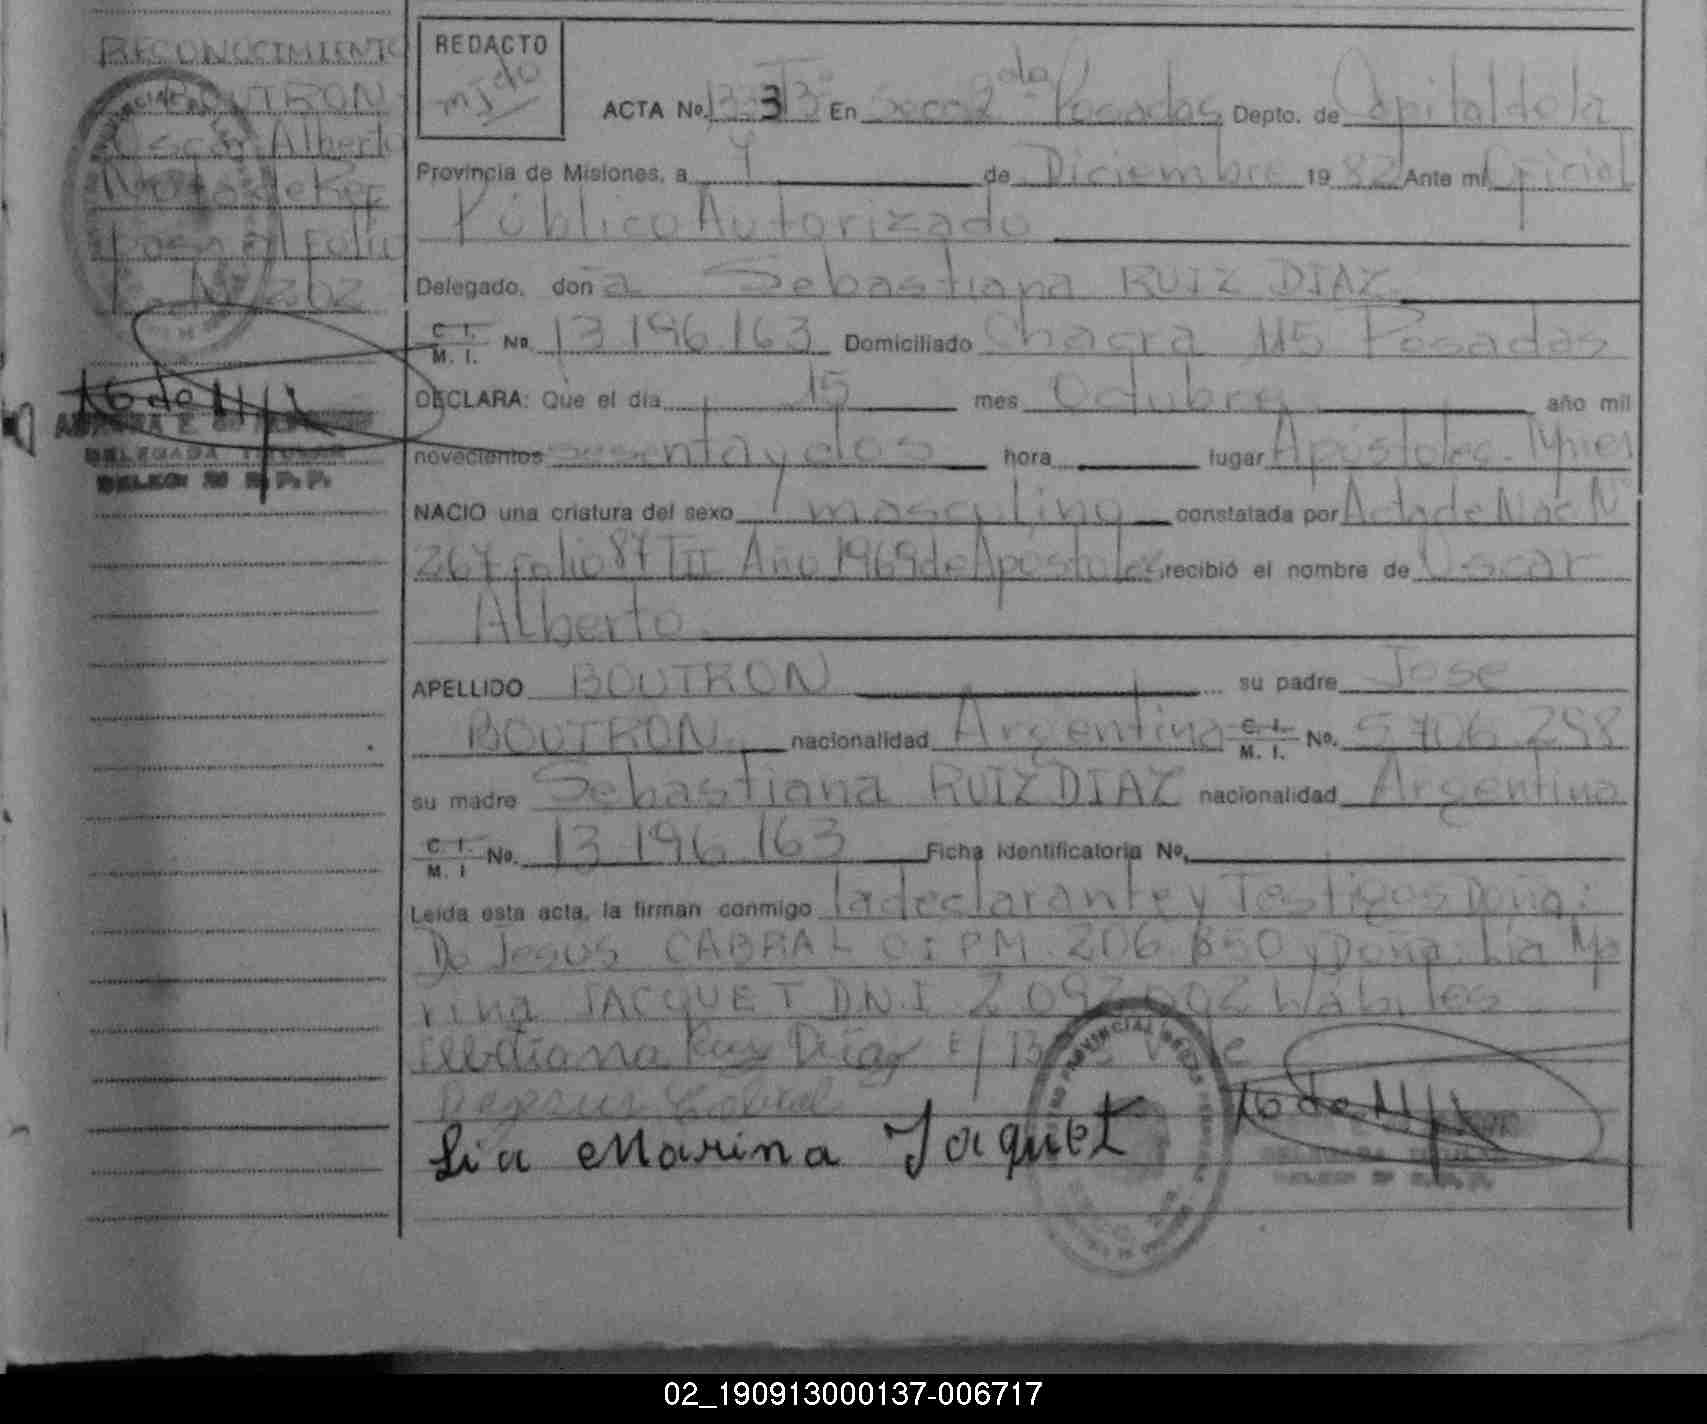 RECONOCIMIENTO
BOUTRON
Oscar Alberto
Nota de Ref
pasa al folio
Nº 262
AURORA E.
DELEGADA TITULAR
DELEG. R.P.P.
REDACTO
ACTA Nº 133 Tº3º En Secc 2da Posadas Depto. de Capital de la
Provincia de Misiones, a 7 de Diciembre 19 82 Ante mí Oficial
Público Autorizado
Delegado, doña Sebastiana RUIZ DIAZ
C. I. M. I. Nº 13.196.163 Domiciliado Chacra 115 Posadas
DECLARA: Que el día 15 mes Octubre año mil
novecientos sesenta y dos hora lugar Apóstoles
NACIO una criatura del sexo masculino constatada por Acta de Nac Nº
267 folio 87 TII Año 1969 de Apostoles recibió el nombre de Oscar
Alberto
APELLIDO BOUTRON su padre Jose
BOUTRON nacionalidad Argentina C. I. M. I. Nº. 5.706.298
su madre Sebastiana RUIZ DIAZ nacionalidad Argentina
C. I. M. I Nº. 13.196.163 Ficha identificatoria Nº.
Leída esta acta, la firman conmigo la declarante y Testigos Doña:
De Jesus CABRAL CIPM 206.850 y Doña: Lia Ma
rina JACQUET D.N.I 2.092.002 hábiles
Sebastiana Ruiz Diaz
Dejesus Cabral
Lia Marina Jaquet
REGISTRO PROVINCIAL DE LAS PERSONAS
02_190913000137-006717